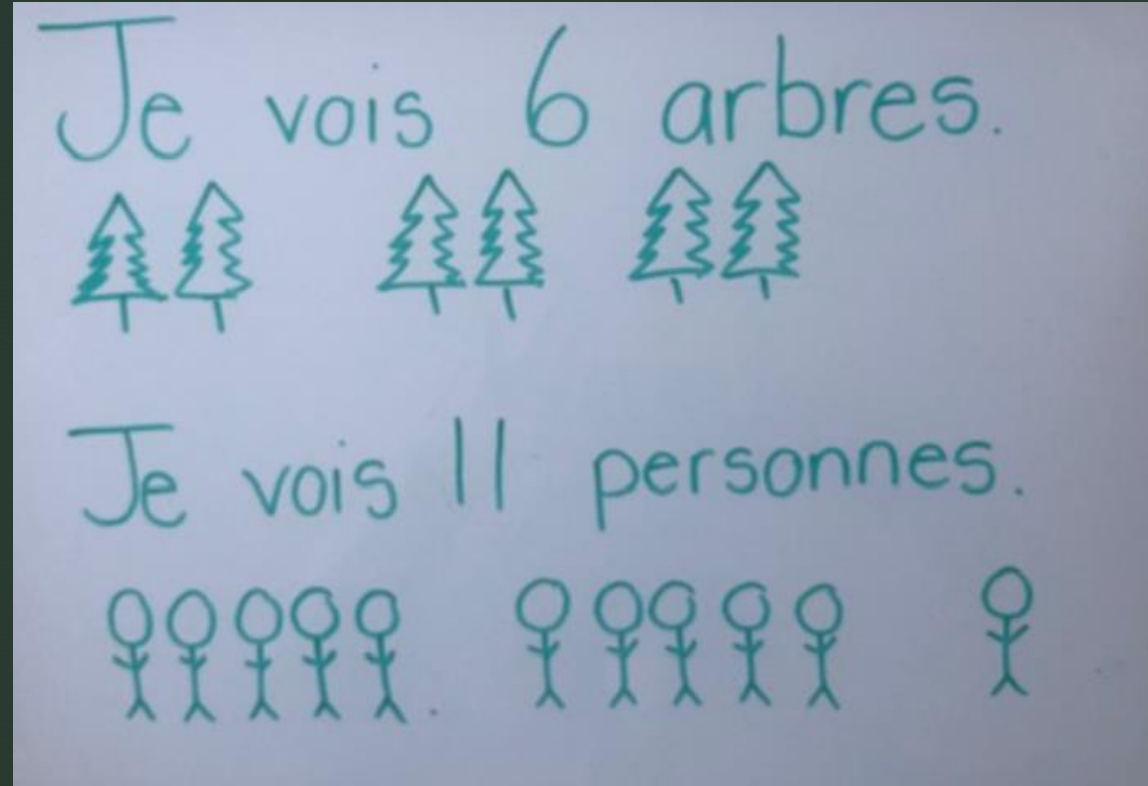 Je vois 6 arbres.
Je vois 11 personnes.